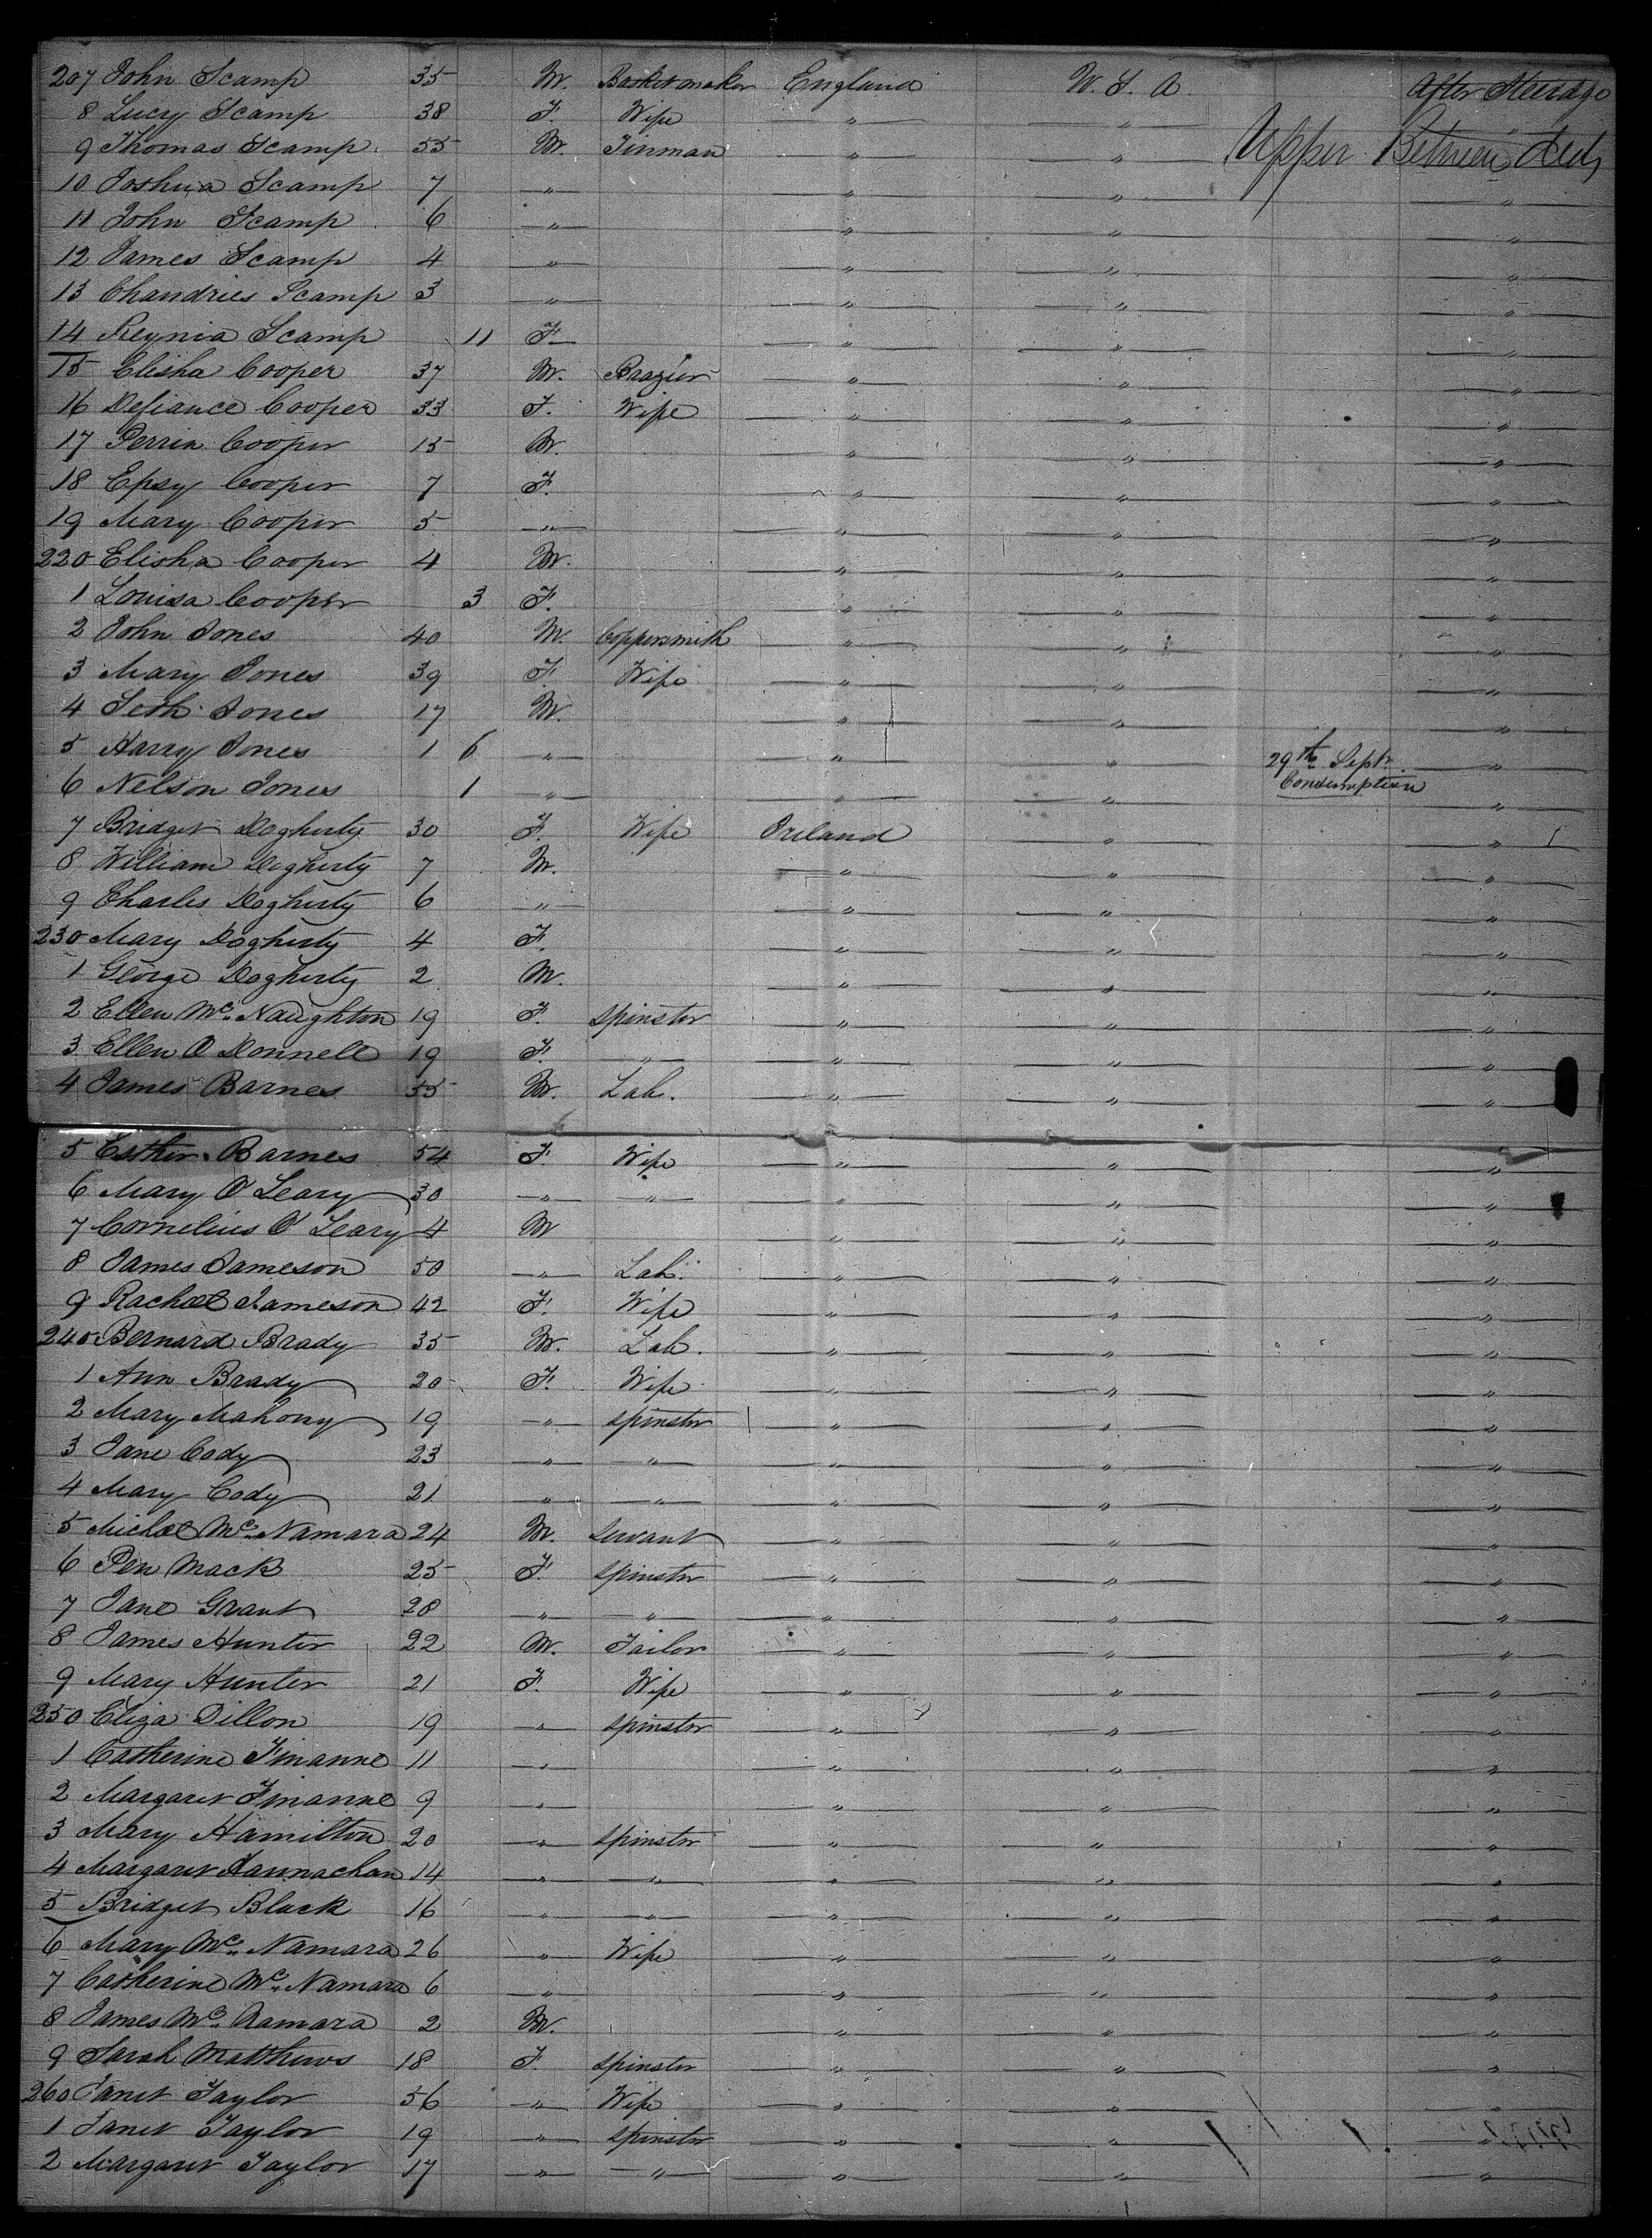 207 John Scamp 35 M. Basketmaker England U. S. A. After Steerage
8 Lucy Scamp 38 F. Wife " "
9 Thomas Scamp 55 M. Tinman " " Upper Between Decks
10 Joshua Scamp 7 " " " "
11 John Scamp 6 " " " "
12 James Scamp 4 " " " "
13 Chandries Scamp 3 " " " "
14 Reynia Scamp 11 F. " " "
15 Elisha Cooper 37 M. Brazier " " "
16 Defiance Cooper 33 F. Wife " " "
17 Perrin Cooper 15 M. " " "
18 Epsy Cooper 7 F. " " "
19 Mary Cooper 5 " " " "
220 Elisha Cooper 4 M. " " "
1 Louisa Cooper 3 F. " " "
2 John Jones 40 M. Coppersmith " " "
3 Mary Jones 39 F. Wife " " "
4 Seth Jones 17 M. " " "
5 Harry Jones 1 6 " " " 29th Sept. "
6 Nelson Jones 1 " " " Consumption "
7 Bridget Dogherty 30 F. Wife Ireland " "
8 William Dogherty 7 M. " " "
9 Charles Dogherty 6 " " " "
230 Mary Dogherty 4 F. " " "
1 George Dogherty 2 M. " " "
2 Ellen Mc Naughton 19 F. Spinster " " "
3 Ellen O Donnell 19 F. " " " "
4 James Barnes 55 M. Lab. " " "
5 Esther Barnes 54 F. Wife " " "
6 Mary O'Leary 30 " " " " "
7 Cornelius O'Leary 4 M " " "
8 James Jameson 50 " Lab. " " "
9 Rachael Jameson 42 F. Wife " " "
240 Bernard Brady 35 M. Lab. " " "
1 Ann Brady 20 F. Wife " " "
2 Mary Mahony 19 " Spinster " " "
3 Jane Cody 23 " " " " "
4 Mary Cody 21 " " " " "
5 Michael Mc Namara 24 M. Servant " " "
6 Pen Mack 25 F. Spinster " " "
7 Jane Grant 28 " " " " "
8 James Hunter 22 M. Tailor " " "
9 Mary Hunter 21 F. Wife " " "
250 Eliza Dillon 19 " Spinster " " "
1 Catherine Finanne 11 " " " "
2 Margaret Finanne 9 " " " "
3 Mary Hamilton 20 " Spinster " " "
4 Margaret Hannachan 14 " " " " "
5 Bridget Black 16 " " " " "
6 Mary Mc Namara 26 " Wife " " "
7 Catherine Mc Namara 6 " " " "
8 James Mc Namara 2 M. " " "
9 Sarah Matthews 18 F. Spinster " " "
260 Janet Taylor 56 " Wife " " "
1 Janet Taylor 19 " Spinster " " "
2 Margaret Taylor 17 " " " " "